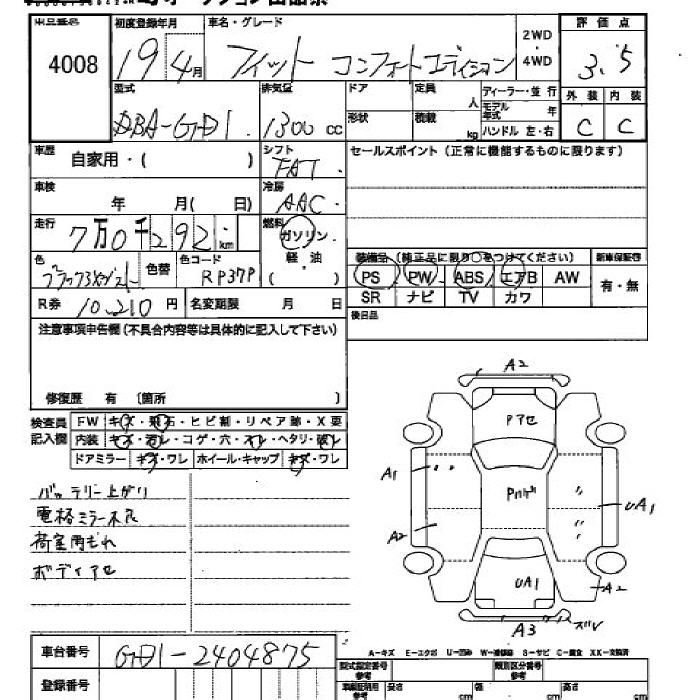 初度登録年月 車名・グレード 2WD・4WD 評価点
4008 19年4月 フィット コンフォートエディション 3.5
型式 排気量 ドア 定員 人 ディーラー・並行 外装 内装
モデル年式 年
DBA-GD1 1300 cc 形状 積載 kg ハンドル 左・右 C C
車歴 自家用・( ) シフト FAT セールスポイント(正常に機能するものに限ります)
車検 年 月( 日) 冷房 AAC
走行 7万0千292 km 燃料 ガソリン・軽油 ( )
装備品(純正品に限り○をつけてください) 新車保証書
色 色替 色コード RP37P PS PW ABS エアB AW 有・無
SR ナビ TV カワ
R券 10,210 円 名変期限 月 日 後日品
注意事項申告欄(不具合内容等は具体的に記入して下さい)
修復歴 有 〔箇所 〕
検査員記入欄 FW キズ・飛石・ヒビ割・リペア跡・X要
内装 キズ・汚レ・コゲ・穴・スレ・ヘタリ・破レ
ドアミラー キズ・ワレ ホイール・キャップ キズ・ワレ
バッテリー上がり
電格ミラー不良
荷室内もれ
ボディアセ
A2
Pアセ
A1
UA1
A2
UA1
A2
A3 ズレ
車台番号 GD1-2404875
A-キズ E-エクボ U-凹み W-補修跡 S-サビ C-腐食 XX-交換済
登録番号
型式指定番号 参考 類別区分番号 参考
長さ cm 幅 cm 高さ cm